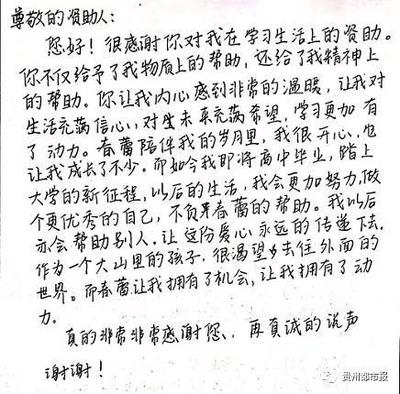 尊敬的资助人：
您好！很感谢你对我在学习生活上的资助。
你不仅给予了我物质上的帮助，还给了我精神上
的帮助。你让我内心感到非常的温暖，让我对
生活充满信心，对生未来充满希望，学习更加有
了动力。春蕾陪伴我的岁月里，我很开心，也
让我成长了不少。而如今我即将高中毕业，踏上
大学的新征程，以后的生活，我会更加努力，做
个更优秀的自己，不负春蕾的帮助。我以后
亦会帮助别人，让这份爱心永远的传递下去．
作为一个大山里的孩子，很渴望去往外面的
世界。而春蕾让我拥有了机会，让我拥有了动
力。
真的非常非常感谢您、再真诚的说声
谢谢！
贵州都市报